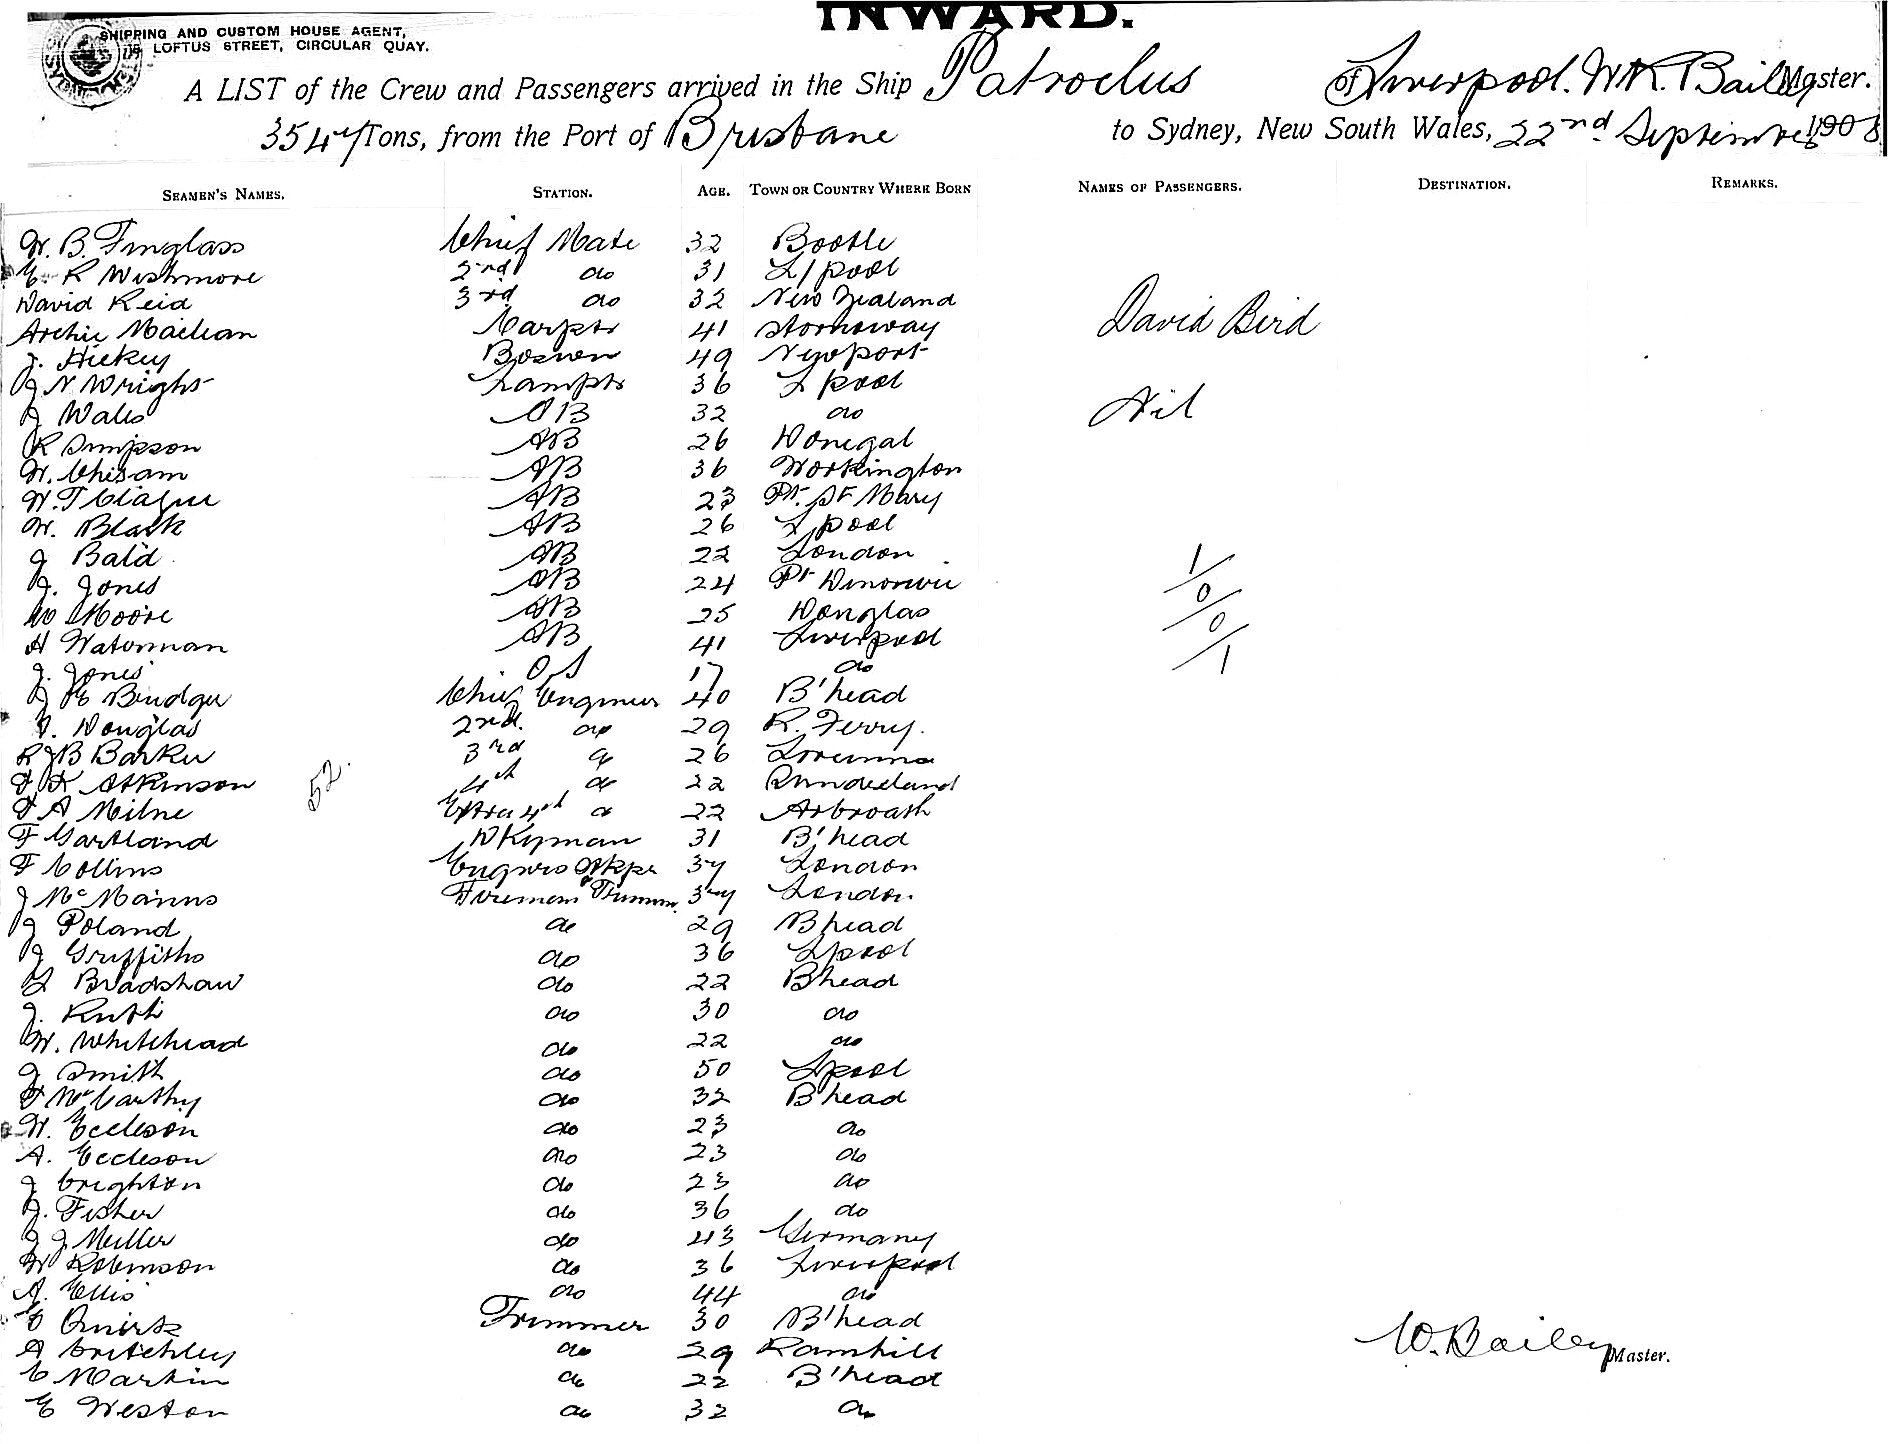 INWARD.
SHIPPING AND CUSTOM HOUSE AGENT,
LOFTUS STREET, CIRCULAR QUAY.
A LIST of the Crew and Passengers arrived in the Ship Patroclus of Liverpool. W.R. Bailey Master.
3547 Tons, from the Port of Brisbane to Sydney, New South Wales, 22nd September 1908
SEAMEN'S NAMES. STATION. AGE. TOWN OR COUNTRY WHERE BORN NAMES OF PASSENGERS. DESTINATION. REMARKS.
W. B. Finglass Chief Mate 32 Bootle
E R Wishmore 2nd do 31 L/pool
David Reid 3rd do 32 New Zealand
David Bird
Archie Maclean Carptr 41 Stornoway
J. Hickey Boswen 49 Newport
J N Wright Lamptr 36 L pool
J Wales AB 32 do
Nil
R Simpson AB 26 Donegal
W. Chisam AB 36 Workington
W. T Clague AB 23 Pt. St Mary
W. Black AB 26 L pool
J Bald AB 22 London
1/
J. Jones AB 24 Pt Dinorwic
0/
W Moore AB 25 Douglas
0/
H Waterman AB 41 Liverpool
/1
J. Jones OS 17 do
J E Bindger Chief Engineer 40 B'head
Douglas 2nd. do 29 R. Ferry.
R J B Barker 3rd do 26
52.
K Atkinson 4th do 22 Sunderland
A Milne Extra 4th do 22 Arbroath
F Gartland Dkyman 31 B'head
F Collins Engnrs Stkpr 37 London
J McManus Fireman & Trimmr. 37 London
J Poland do 29 B head
J Griffiths do 36 Lpool
Bradshaw do 22 Bhead
J. Ruth do 30 do
W. Whitehead do 22 do
J Smith do 50 Lpool
McCarthy do 32 B head
W. Eccleson do 23 do
A. Eccleson do 23 do
J Creighton do 23 do
J. Fisher do 36 do
J J Muller do 43 Germany
W Robinson do 36 Liverpool
A. Ellis do 44 do
E Quirk Trimmer 30 B'head
A Critchley do 29 Rainhill
W. Bailey Master.
C Martin do 22 B'head
E Weston do 32 do